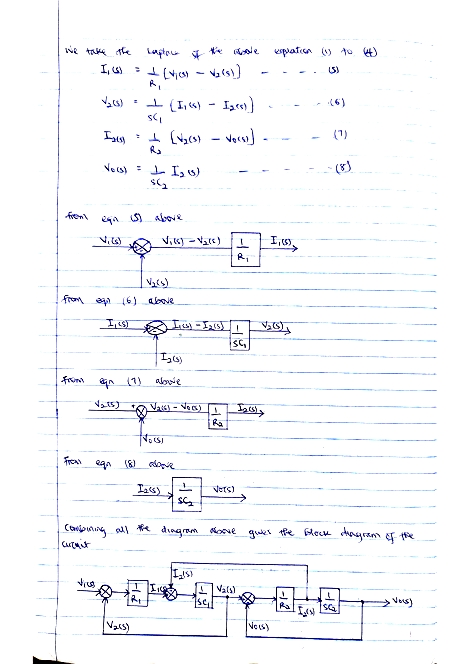 We take the Laplace of the above equation (1) to (4)
I₁(s) = 1/R₁ [V₁(s) − V₂(s)] - - - - (5)
V₂(s) = 1/SC₁ [I₁(s) − I₂(s)] - - - (6)
I₂(s) = 1/R₂ [V₂(s) − V₀(s)] - - - - (7)
V₀(s) = 1/SC₂ I₂(s) - - - - (8)
from eqn (5) above
V₁(s) V₁(s) − V₂(s) 1/R₁ I₁(s)
V₂(s)
from eqn (6) above
I₁(s) I₁(s) − I₂(s) 1/SC₁ V₂(s)
I₂(s)
from eqn (7) above
V₂(s) + V₂(s) − V₀(s) 1/R₂ I₂(s)
V₀(s)
from eqn (8) above
I₂(s) 1/SC₂ V₀(s)
Combining all the diagram above gives the block diagram of the
circuit
I₂(s)
V₁(s) 1/R₁ I₁(s) 1/SC₁ V₂(s) 1/R₂ I₂(s) 1/SC₂ V₀(s)
V₂(s) V₀(s)